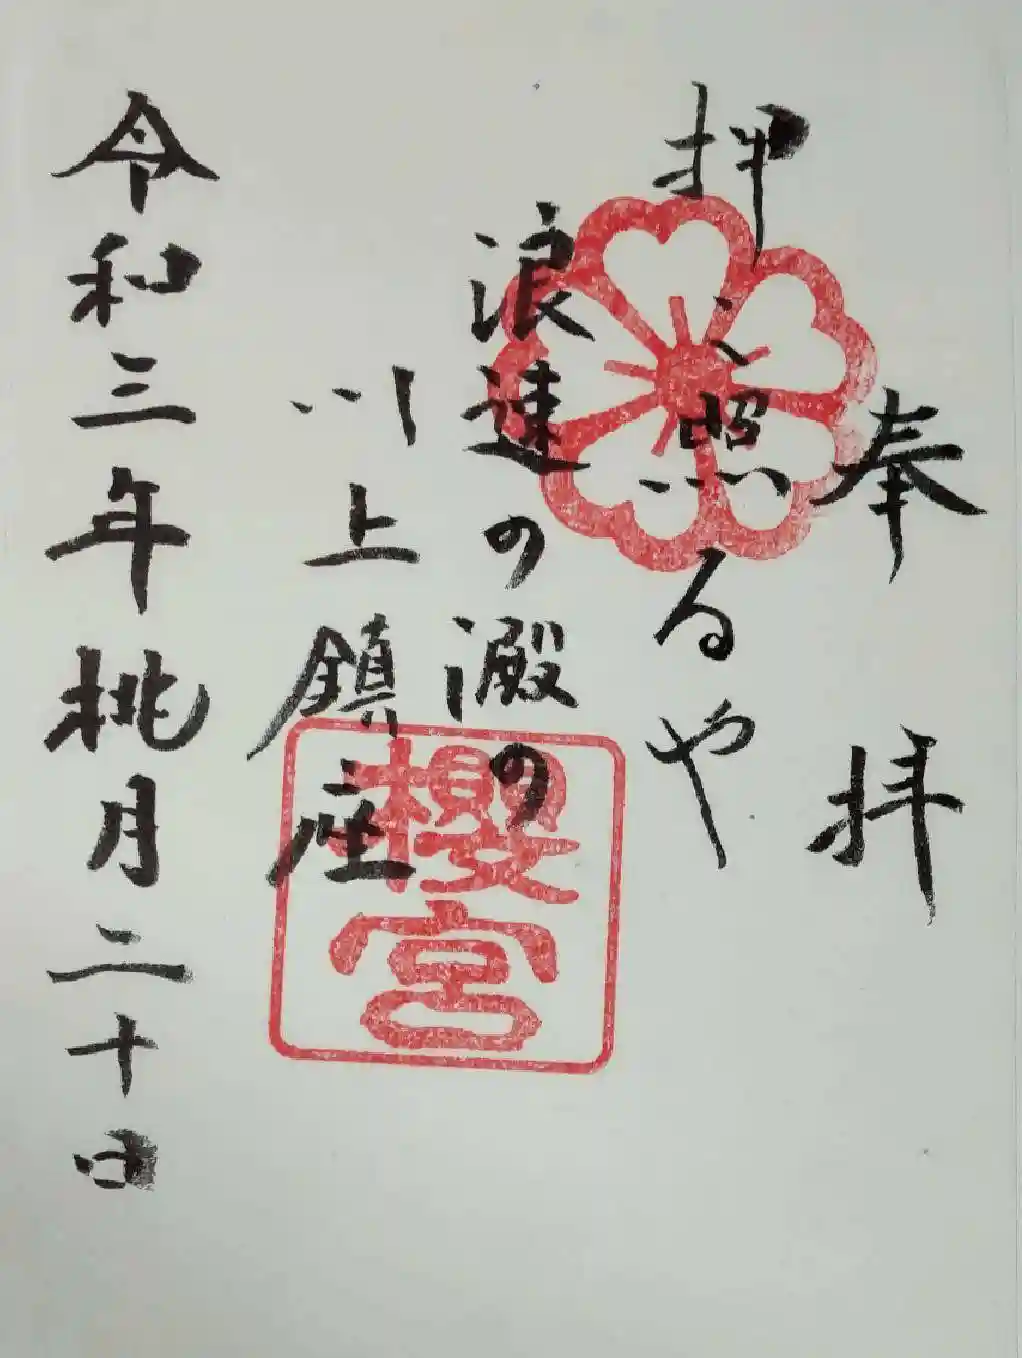 奉拝
押し照るや
浪速の澱の
川上鎮座
令和三年桃月二十日
櫻宮